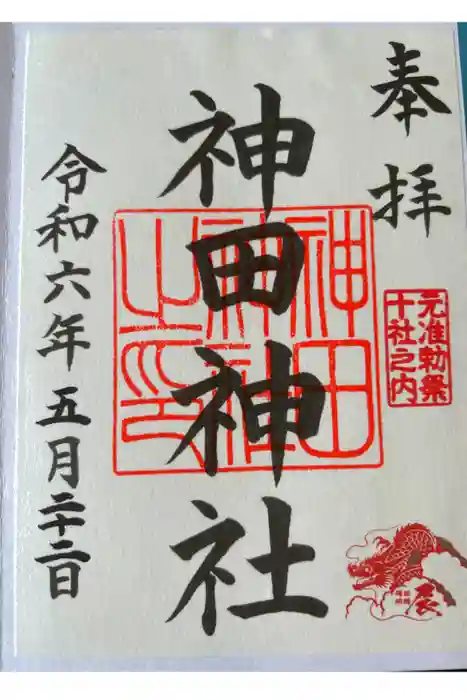 奉拝
元准勅祭
十社之内
神田神社
神田
神社
之印
令和六年五月二十二日
辰